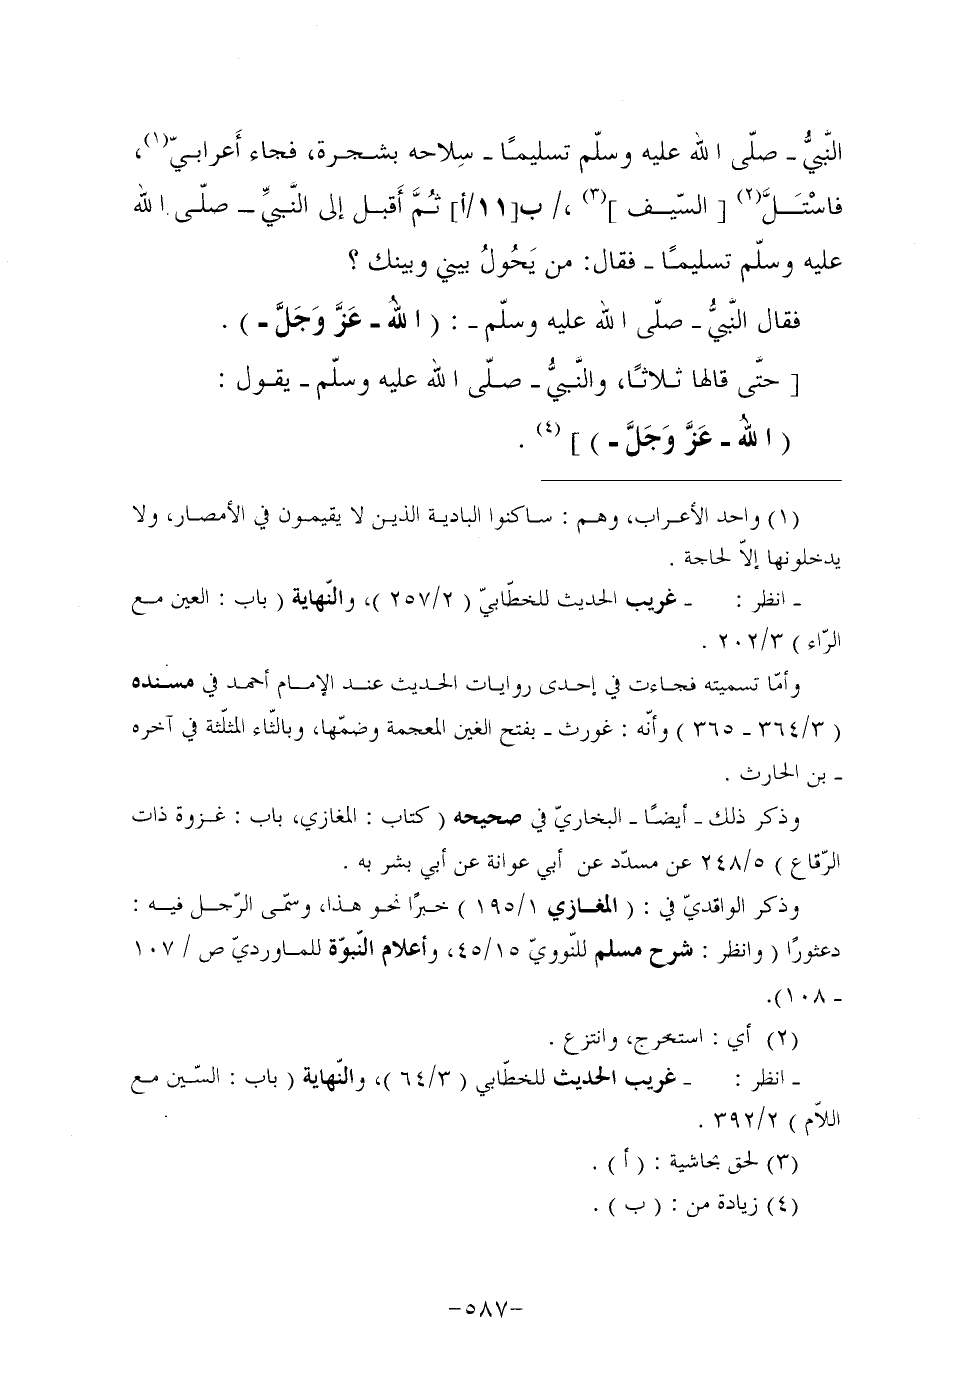 النَّبيُّ ـ صلّى الله عليه وسلّم تسليمًا ـ سِلاحه بشجرة، فجاء أَعرابيّ(١)،
فاسْتَلَّ(٢) [ السّيف ](٣) ،/ ب[١١/أ] ثُمَّ أَقبل إلى النَّبيِّ ـ صلّى الله
عليه وسلّم تسليمًا ـ فقال: من يَحُولُ بيني وبينك ؟
فقال النَّبيُّ ـ صلّى الله عليه وسلّم ـ : ( الله ـ عَزَّ وَجَلَّ ـ ) .
[ حتَّى قالها ثلاثًا، والنَّبيُّ ـ صلّى الله عليه وسلّم ـ يقول :
( الله ـ عَزَّ وَجَلَّ ـ ) ] (٤) .
(١) واحد الأعراب، وهم : ساكنوا البادية الذين لا يقيمون في الأمصار، ولا
يدخلونها إلاّ لحاجة .
ـ انظر : ـ غريب الحديث للخطّابيّ ( ٢/٢٥٧ )، والنّهاية ( باب : العين مع
الرّاء ) ٣/٢٠٢ .
وأمّا تسميته فجاءت في إحدى روايات الحديث عند الإمام أحمد في مسنده
( ٣/٣٦٤ ـ ٣٦٥ ) وأنّه : غورث ـ بفتح الغين المعجمة وضمّها، وبالثّاء المثلّثة في آخره
ـ بن الحارث .
وذكر ذلك ـ أيضًا ـ البخاريّ في صحيحه ( كتاب : المغازي، باب : غزوة ذات
الرّقاع ) ٥/٢٤٨ عن مسدّد عن أبي عوانة عن أبي بشر به .
وذكر الواقديّ في : ( المغازي ١/١٩٥ ) خبرًا نحو هذا، وسمّى الرّجل فيه :
دعثورًا ( وانظر : شرح مسلم للنّوويّ ١٥/٤٥، وأعلام النّبوّة للماورديّ ص / ١٠٧
ـ ١٠٨).
(٢) أي : استخرج، وانتزع .
ـ انظر : ـ غريب الحديث للخطّابي ( ٣/٦٤ )، والنّهاية ( باب : السّين مع
اللاّم ) ٢/٣٩٢ .
(٣) لحق بحاشية : ( أ ) .
(٤) زيادة من : ( ب ) .
-٥٨٧-